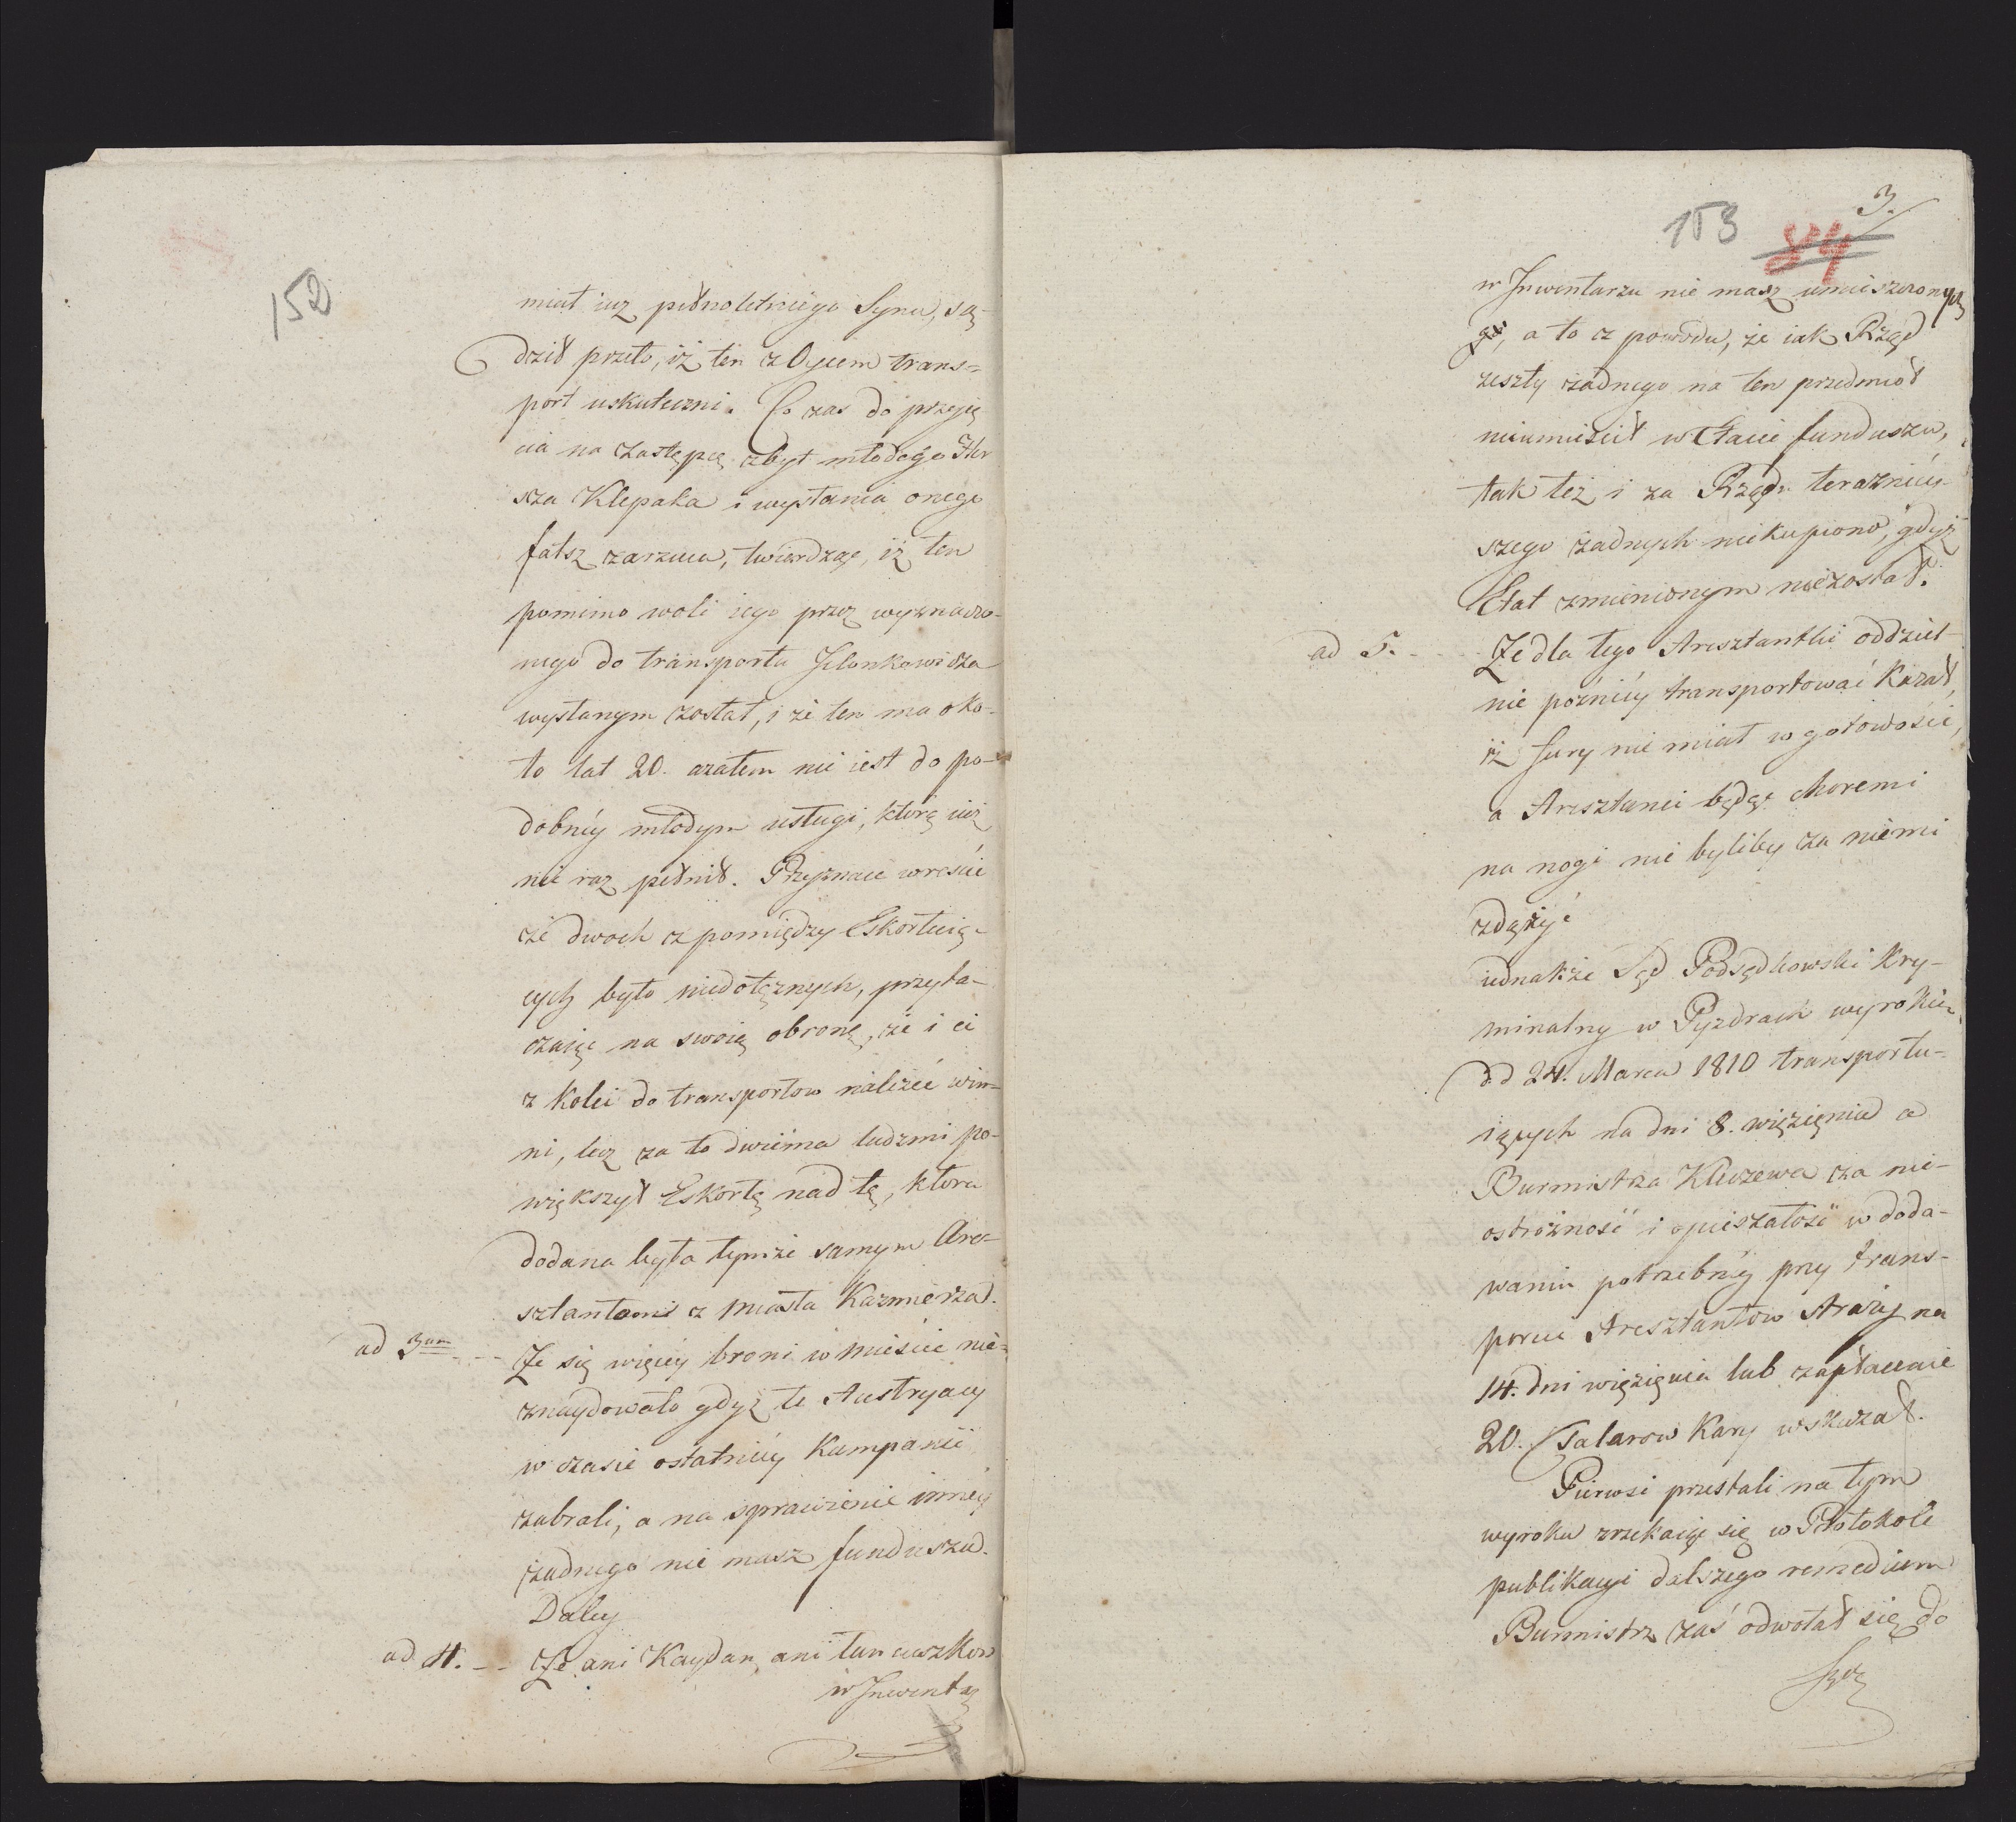 152
miał iuz pełnoletniego Syna, są-
dził przeto, iż ten z Oycem trans=
port uskuteczni. Co zas do przyię
cia na Zastępcę zbyt młodego Her
sza Klepaka i wysłania onego
fałsz zarzuca, twierdząc, iż ten
pomimo woli iego przez wyznaczo-
nego do transportu Jelonkowicza
wysłanym został, i że ten ma oko-
ło lat 20. azatem nie iest do po-
dobnéy młodym usługi, którą iuż
nie raz pełnił. Przyznaie wreście
że dwoch z pomiędzy Eskortuią-
cych było niedołężnych, przyta-
czaiąc na swoią obronę, że i ci
z kolei do transportow należeć win-
ni, lecz za to dwiema ludzmi po-
większył Eskortę nad tę, ktora
dodana była tymże samym Are-
sztantom z miasta Kazmierza.
ad 3um Ze się więcéy broni w mieście nie=
znaydowało gdyż te Austryacy
w czasie ostatniéy Kampanii
zabrali, a na sprawienie innéy
żadnego nie masz funduszu.
Daléy
ad 4. -- Ze ani Kaydan, ani łancuszkow
w Inwenta
3.
153 84
w Inwentarzu nie masz umieszczonych
, a to z powodu, że iak Rząd
zeszły żadnego na ten przedmiot
nieumieścił w Etacie funduszu,
tak też i za Rządu teraznieỳ-
szego żadnych niekupiono, gdyż
Etat zmienionym niezostał.
ad 5. Ze dla tego Aresztantki oddziel-
nie poźniéy transportować kazał,
iż fury nie miał w gotowości,
a Aresztanci będąc choremi
na nogi nie byliby za niemi
zdążyć
iednakże Sąd Podsędkowski Kry-
minalny w Pyzdrach wyrokiem
dd 24. Marca 1810 transportu-
iących na dni 8. więzięnia a
Burmistrza Kleczewa za nie-
ostrożność i opieszałość w doda-
waniu potrzebnéy przy trans-
porcie Aresztantow straży na
14. dni więzięnia lub zapłacenie
20. Talarow Kary wskazał.
Pierwsi przestali na tym
wyroku zrzekaiąc się w Protokole
publikacyi dalszego remedium
Burmistrz zaś odwołał się do